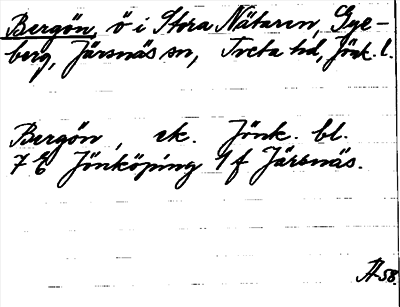 Bergön, ö i Stora Nätaren, Gye-
berg, Järsnäs sn, Tveta hd, Jönk. l.
Bergön, ek. Jönk. bl.
7 E Jönköping 1 f Järsnäs.
58.